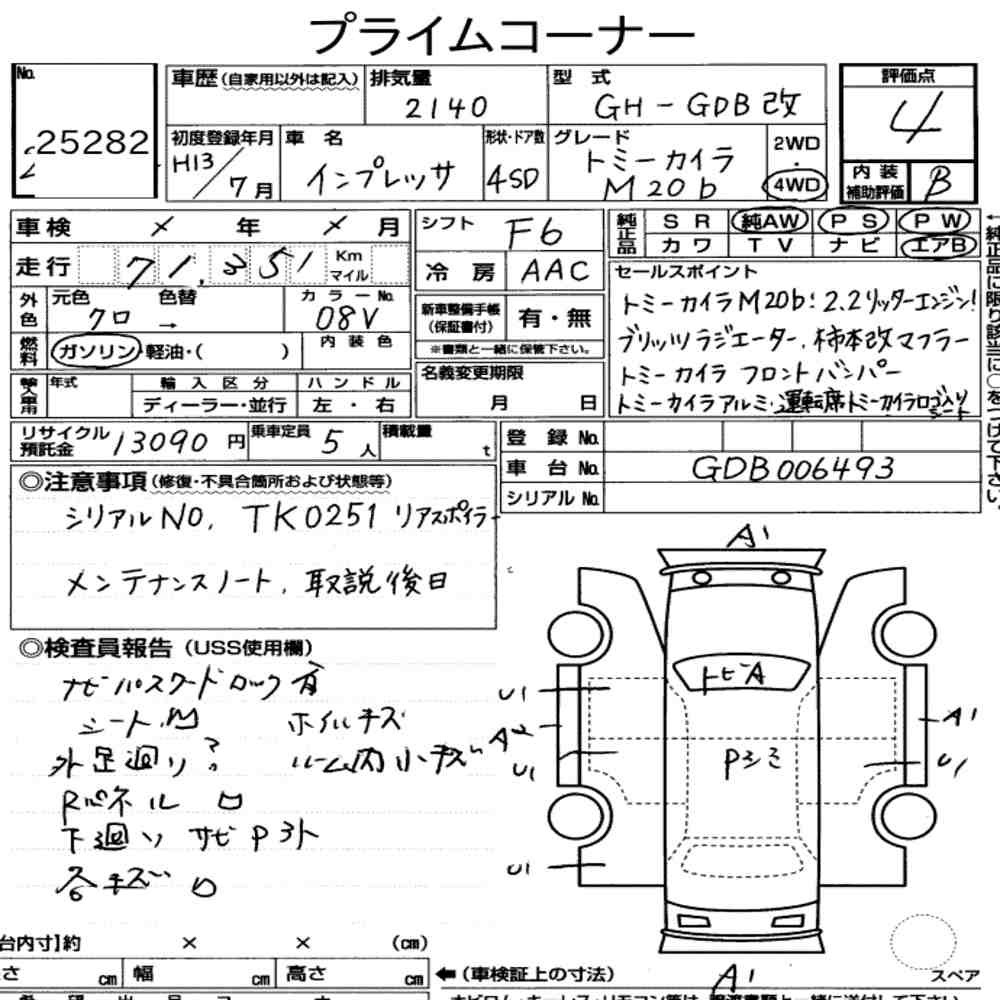 プライムコーナー
No.
25282
車歴(自家用以外は記入)
排気量
2140
型式
GH-GDB改
評価点
4
初度登録年月
H13/7月
車名
インプレッサ
形状・ドア数
4SD
グレード
トミーカイラ
M20b
2WD
・
4WD
内装
補助評価
B
車検 × 年 × 月
シフト
F6
純正品
SR 純AW PS PW
カワ TV ナビ エアB
走行 71,351 Km マイル
冷房
AAC
セールスポイント
トミーカイラM20b:2.2リッターエンジン!
ブリッツラジエーター,柿本改マフラー
トミーカイラ フロントバンパー
トミーカイラアルミ・運転席トミーカイラロゴ入りシート
←純正品に限り該当に○をつけて下さい。
外色
元色
クロ
色替
→
カラーNo.
08V
新車整備手帳
(保証書付)
有・無
※書類と一緒に保管下さい。
燃料
ガソリン・軽油・( )
内装色
名義変更期限
月 日
輸入車用
年式
輸入区分
ディーラー・並行
ハンドル
左・右
リサイクル
預託金
13090円
乗車定員
5人
積載量
t
登録No.
車台No.
GDB006493
シリアルNo.
◎注意事項(修復・不具合箇所および状態等)
シリアルNO, TK0251 リアスポイラー
メンテナンスノート,取説後日
◎検査員報告(USS使用欄)
ナビパスワードロック有
シート
ホイルキズ
外足廻り
ルーム内小キズ
Rパネル
下廻り サビ P
キズ
A1
トビA
U1
A1
U1
Pシミ
U1
U1
A1
スペア
台内寸]約 × × (cm)
さ cm 幅 cm 高さ cm
←(車検証上の寸法)